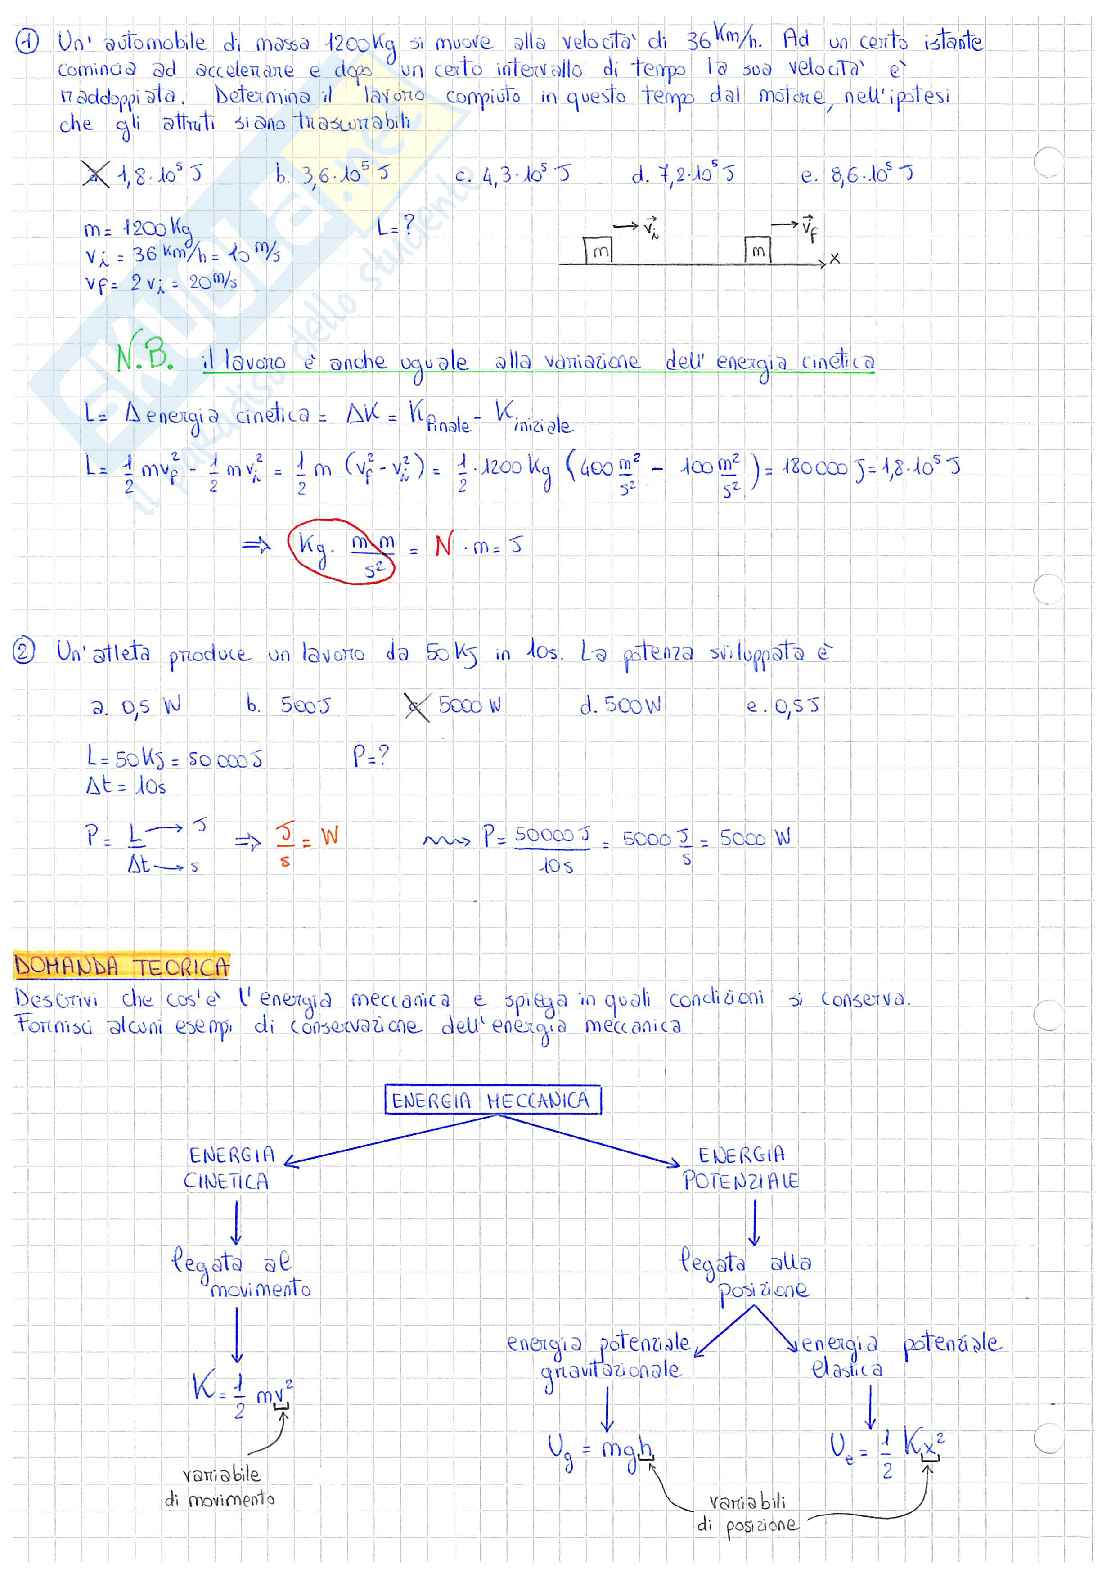 ① Un'automobile di massa 1200Kg si muove alla velocità di 36 Km/h. Ad un certo istante
comincia ad accelerare e dopo un certo intervallo di tempo la sua velocità è
raddoppiata. Determina il lavoro compiuto in questo tempo dal motore, nell'ipotesi
che gli attriti siano trascurabili
a. 1,8·10⁵ J b. 3,6·10⁵ J c. 4,3·10⁵ J d. 7,2·10⁵ J e. 8,6·10⁵ J
m = 1200 Kg L = ?
vᵢ = 36 Km/h = 10 m/s
vf = 2 vᵢ = 20 m/s
m v⃗ᵢ m v⃗f x
N.B. il lavoro è anche uguale alla variazione dell'energia cinetica
L = Δ energia cinetica = ΔK = Kfinale - Kiniziale
L = 1/2 mvf² - 1/2 mvᵢ² = 1/2 m (vf² - vᵢ²) = 1/2 · 1200 Kg (400 m²/s² - 100 m²/s²) = 180 000 J = 1,8·10⁵ J
⇒ Kg · m·m/s² = N · m = J
② Un'atleta produce un lavoro da 50 KJ in 10s. La potenza sviluppata è
a. 0,5 W b. 500 J c. 5000 W d. 500 W e. 0,5 J
L = 50 KJ = 50 000 J P = ?
Δt = 10s
P = L/Δt → J → s ⇒ J/s = W ⇝ P = 50000 J/10s = 5000 J/s = 5000 W
DOMANDA TEORICA
Descrivi che cos'è l'energia meccanica e spiega in quali condizioni si conserva.
Fornisci alcuni esempi di conservazione dell'energia meccanica
ENERGIA MECCANICA
ENERGIA CINETICA
legata al movimento
K = 1/2 mv²
variabile di movimento
ENERGIA POTENZIALE
legata alla posizione
energia potenziale gravitazionale
Ug = mgh
energia potenziale elastica
Ue = 1/2 Kx²
variabili di posizione
SKUOLA.net
il paradiso dello studente